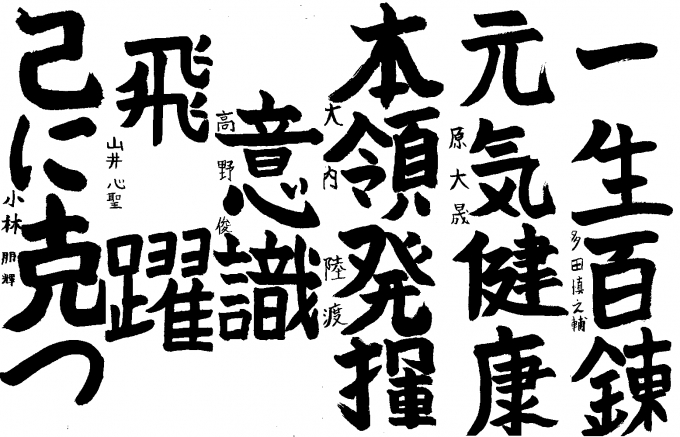 一生百錬
多田慎之輔
元気健康
原大晟
本領発揮
大内陸渡
意識
高野俊
飛躍
山井心聖
己に克つ
小林朋輝